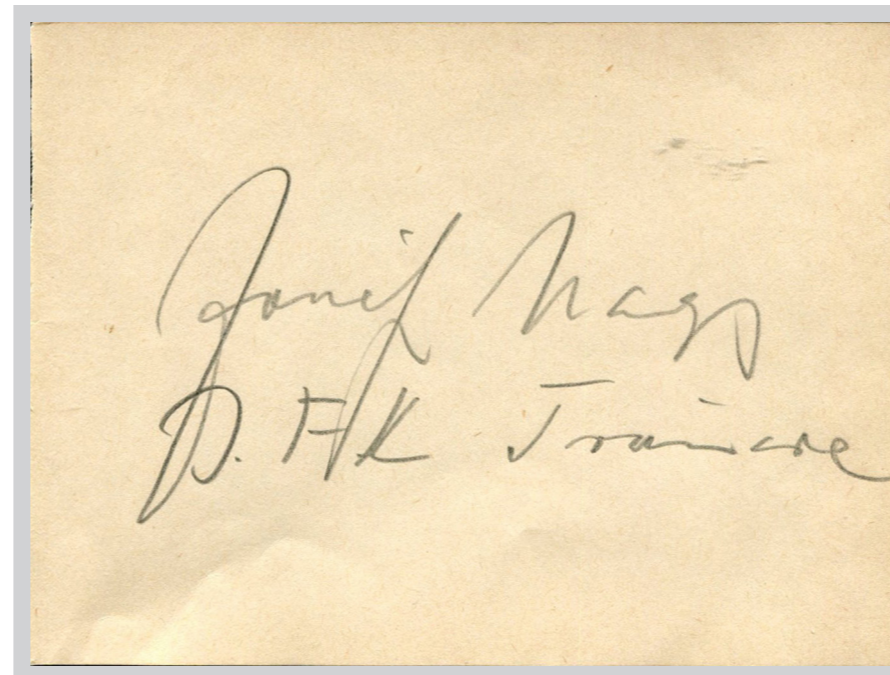 József Nagy
D. F. K Trainer